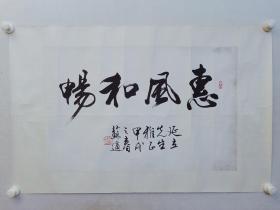 惠風和暢
延立
先生
雅正
甲戌
之春
蘇適